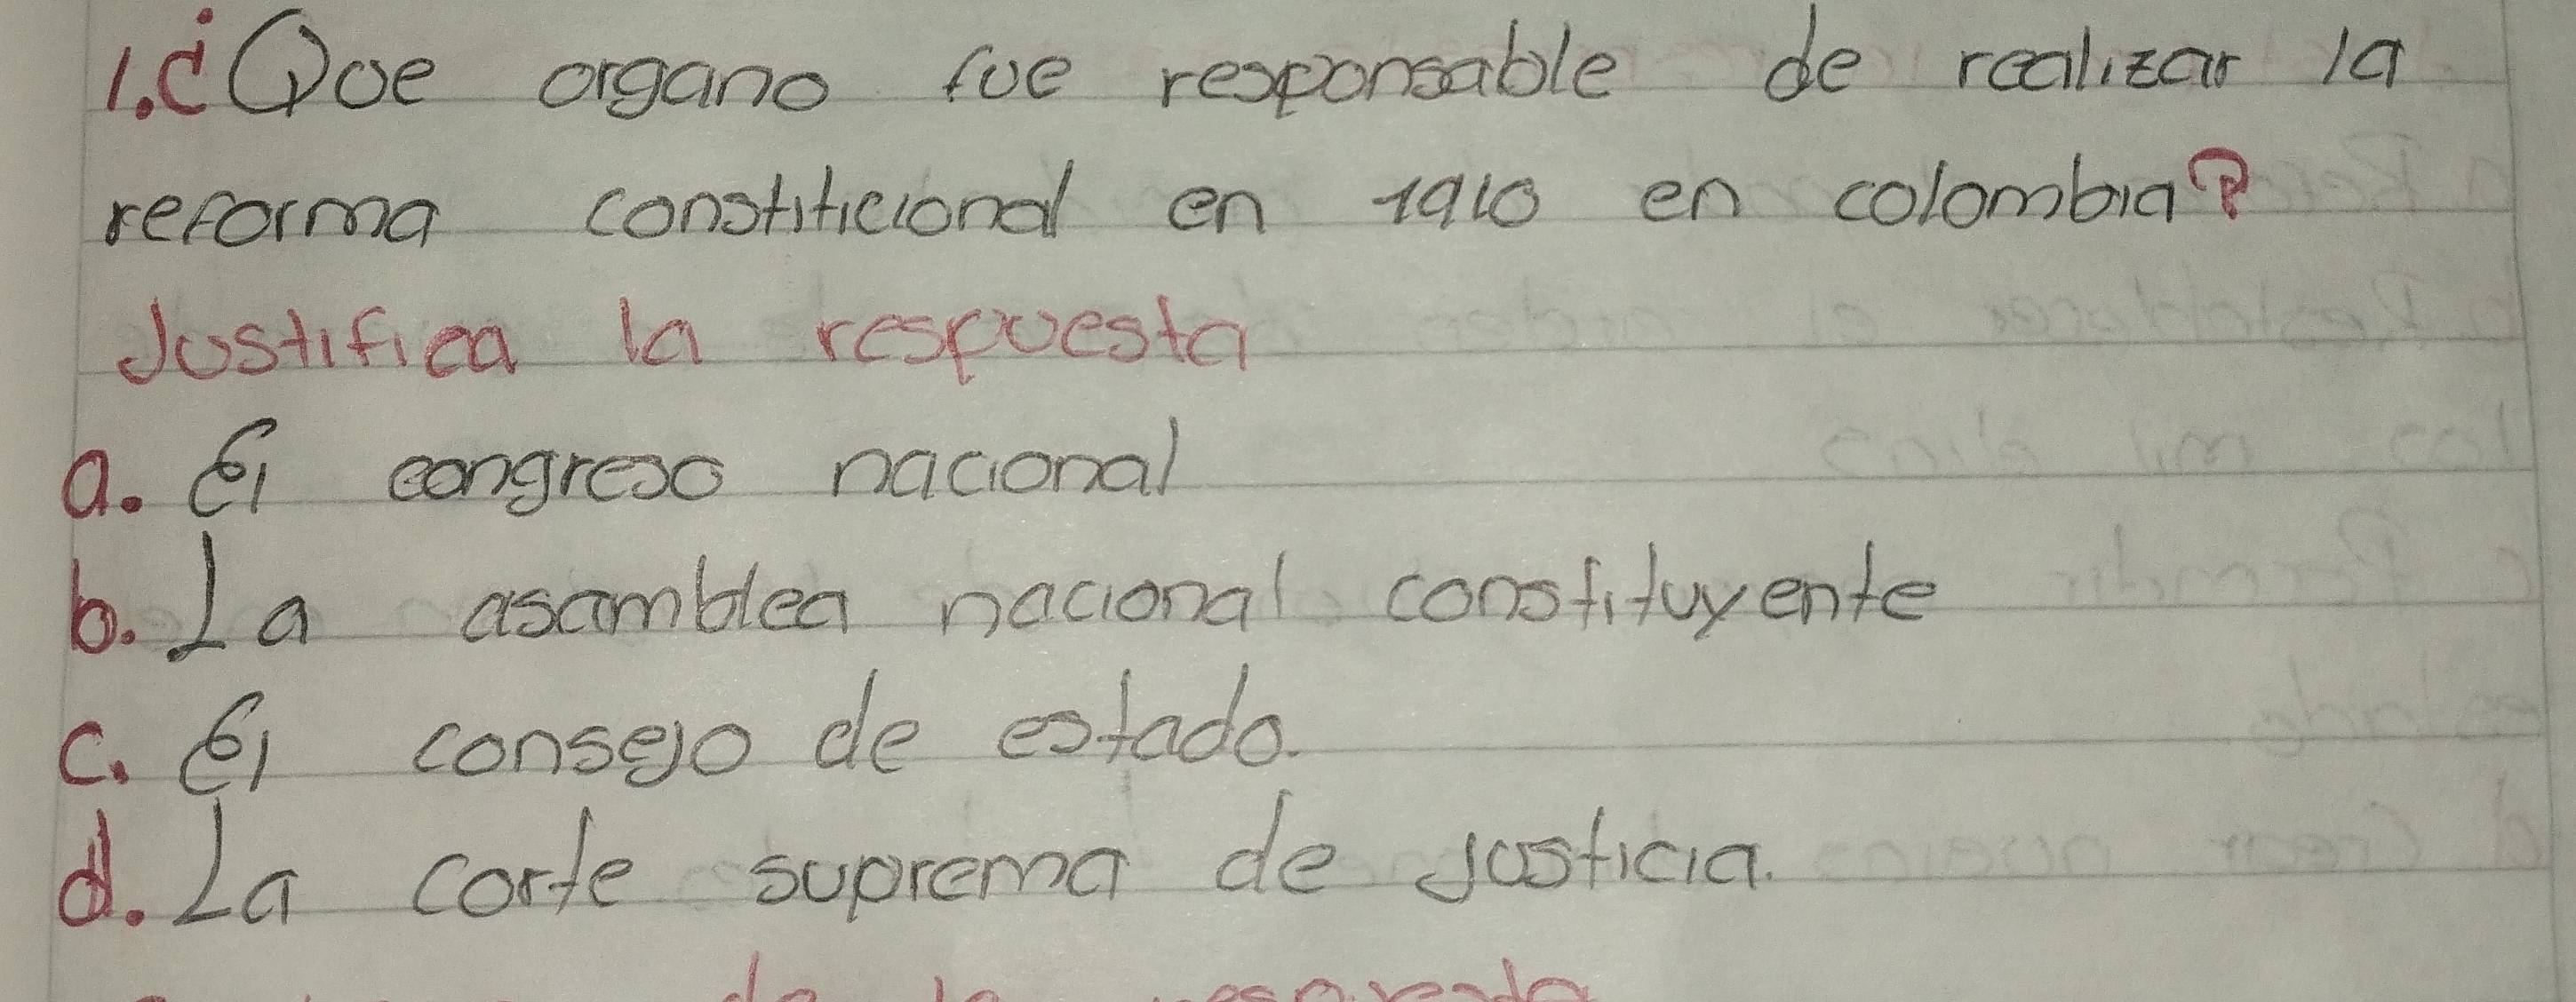 1. ¿Que organo fue responsable de realizar la
reforma constiticional en 1910 en colombia?
Justifica la respuesta
a. El congreso nacional
b. La asamblea nacional constituyente
c. El consejo de estado.
d. La corte suprema de justicia.
de la respuesta